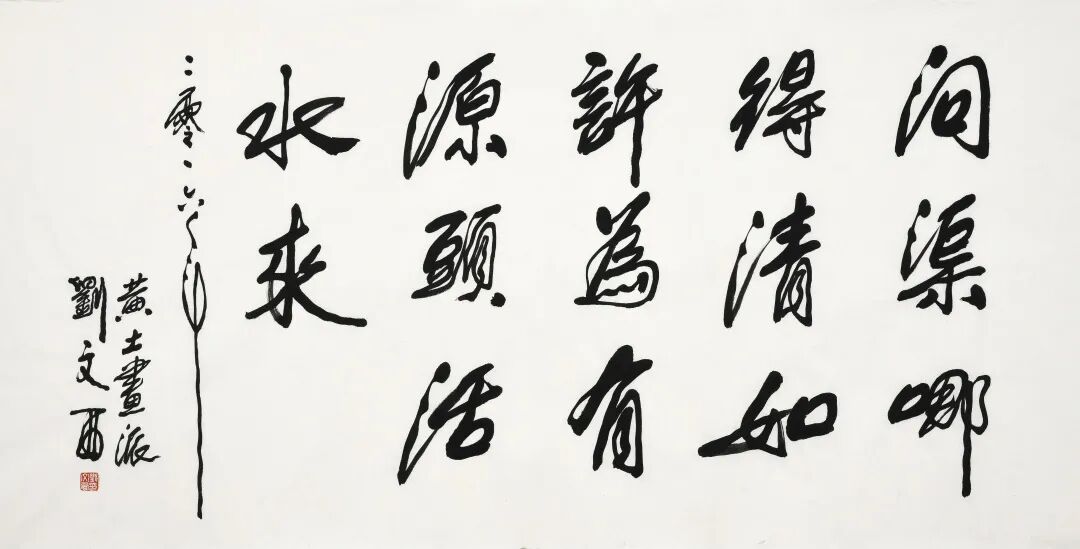 问渠哪
得清如
許為有
源頭活
水来
二零一六年
黄土畫派
劉文西